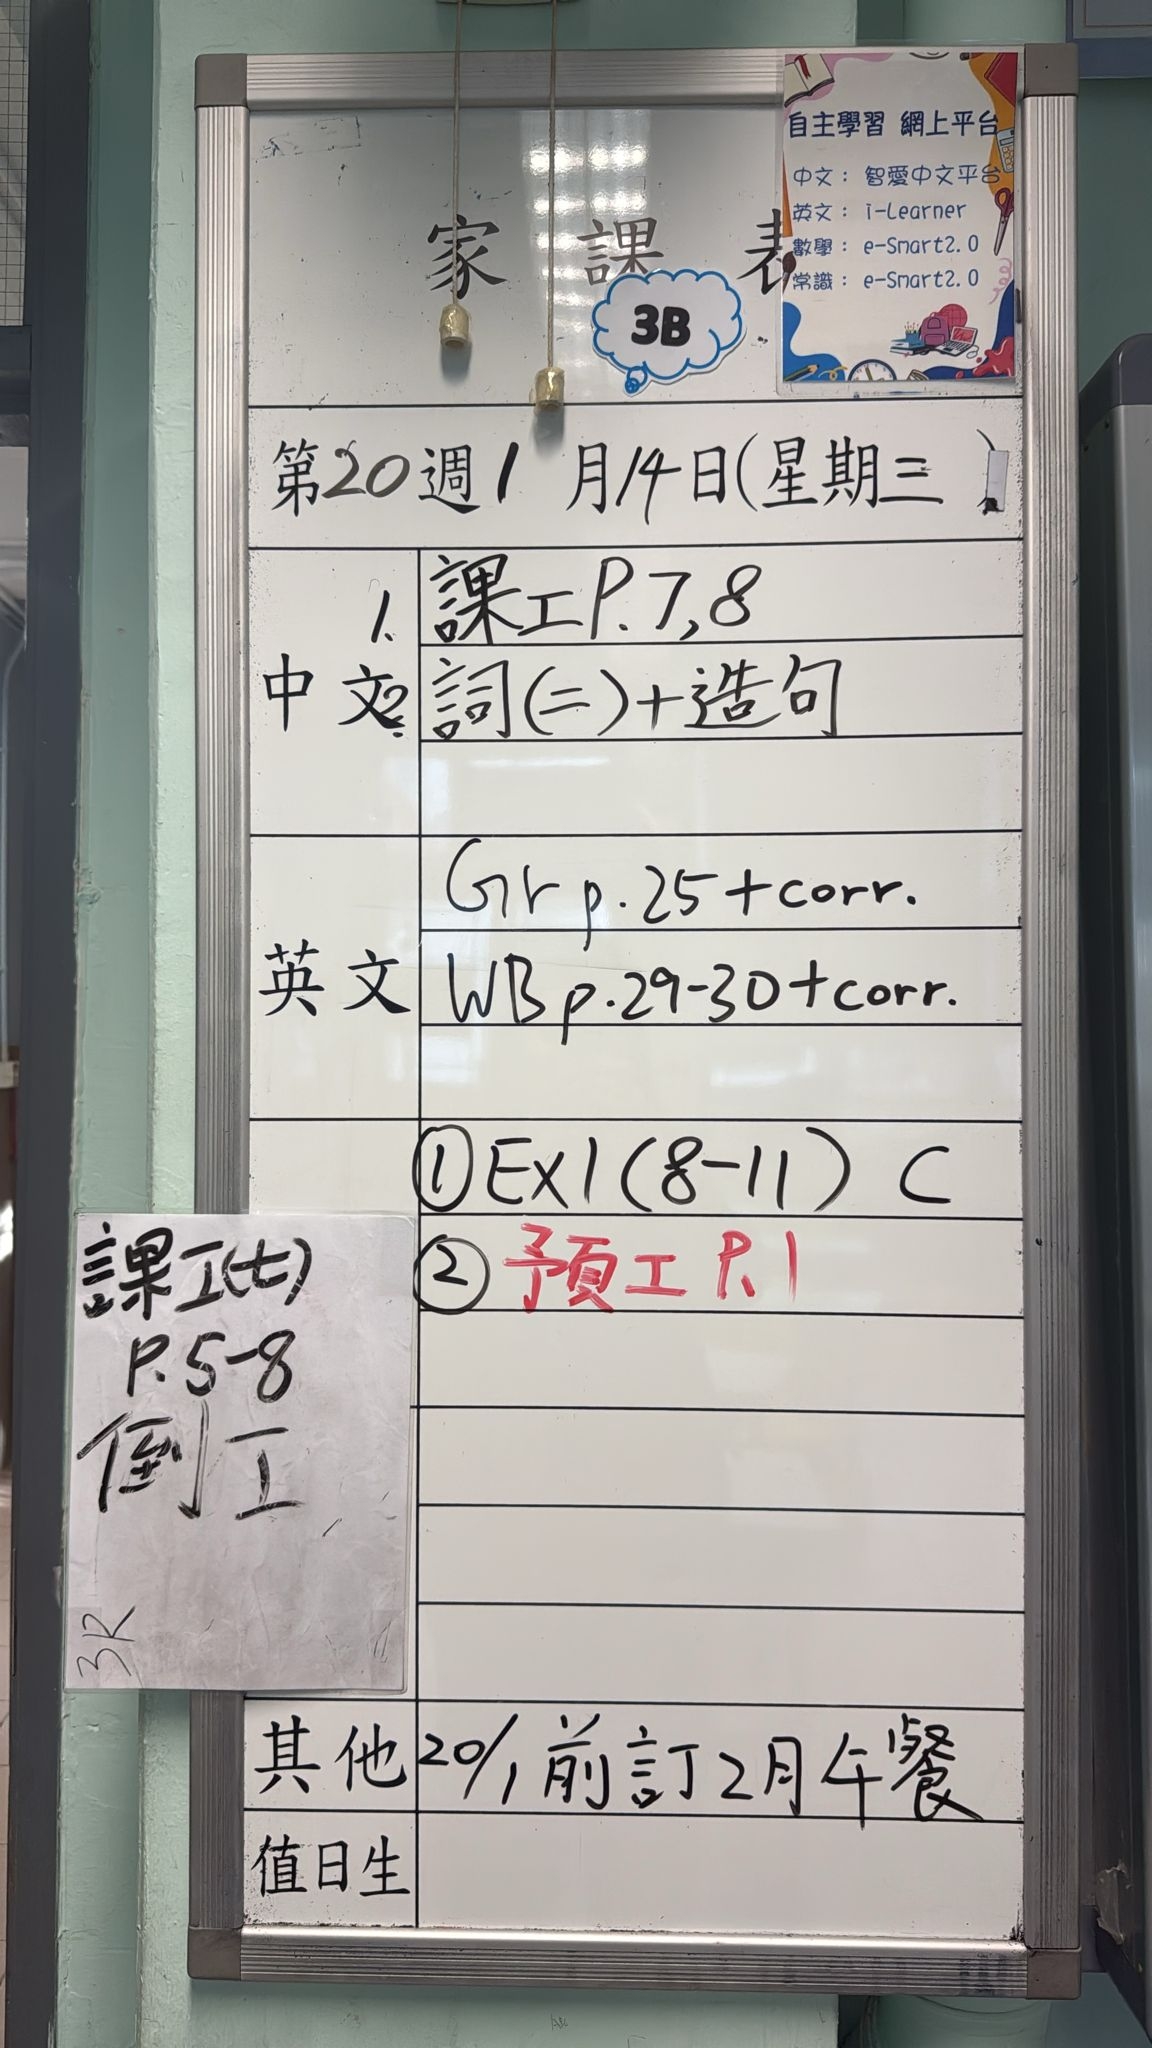 自主學習 網上平台
中文：智愛中文平台
英文：i-Learner
數學：e-Smart2.0
常識：e-Smart2.0
家課表
3B
第20週1月14日(星期三)
中文
1. 課工P.7,8
2. 詞(二)+造句
英文
Gr p.25+corr.
WB p.29-30+corr.
① Ex1(8-11) C
② 預工 P.1
課工(七)
P.5-8
倒工
3R
其他
20/1前訂2月午餐
值日生